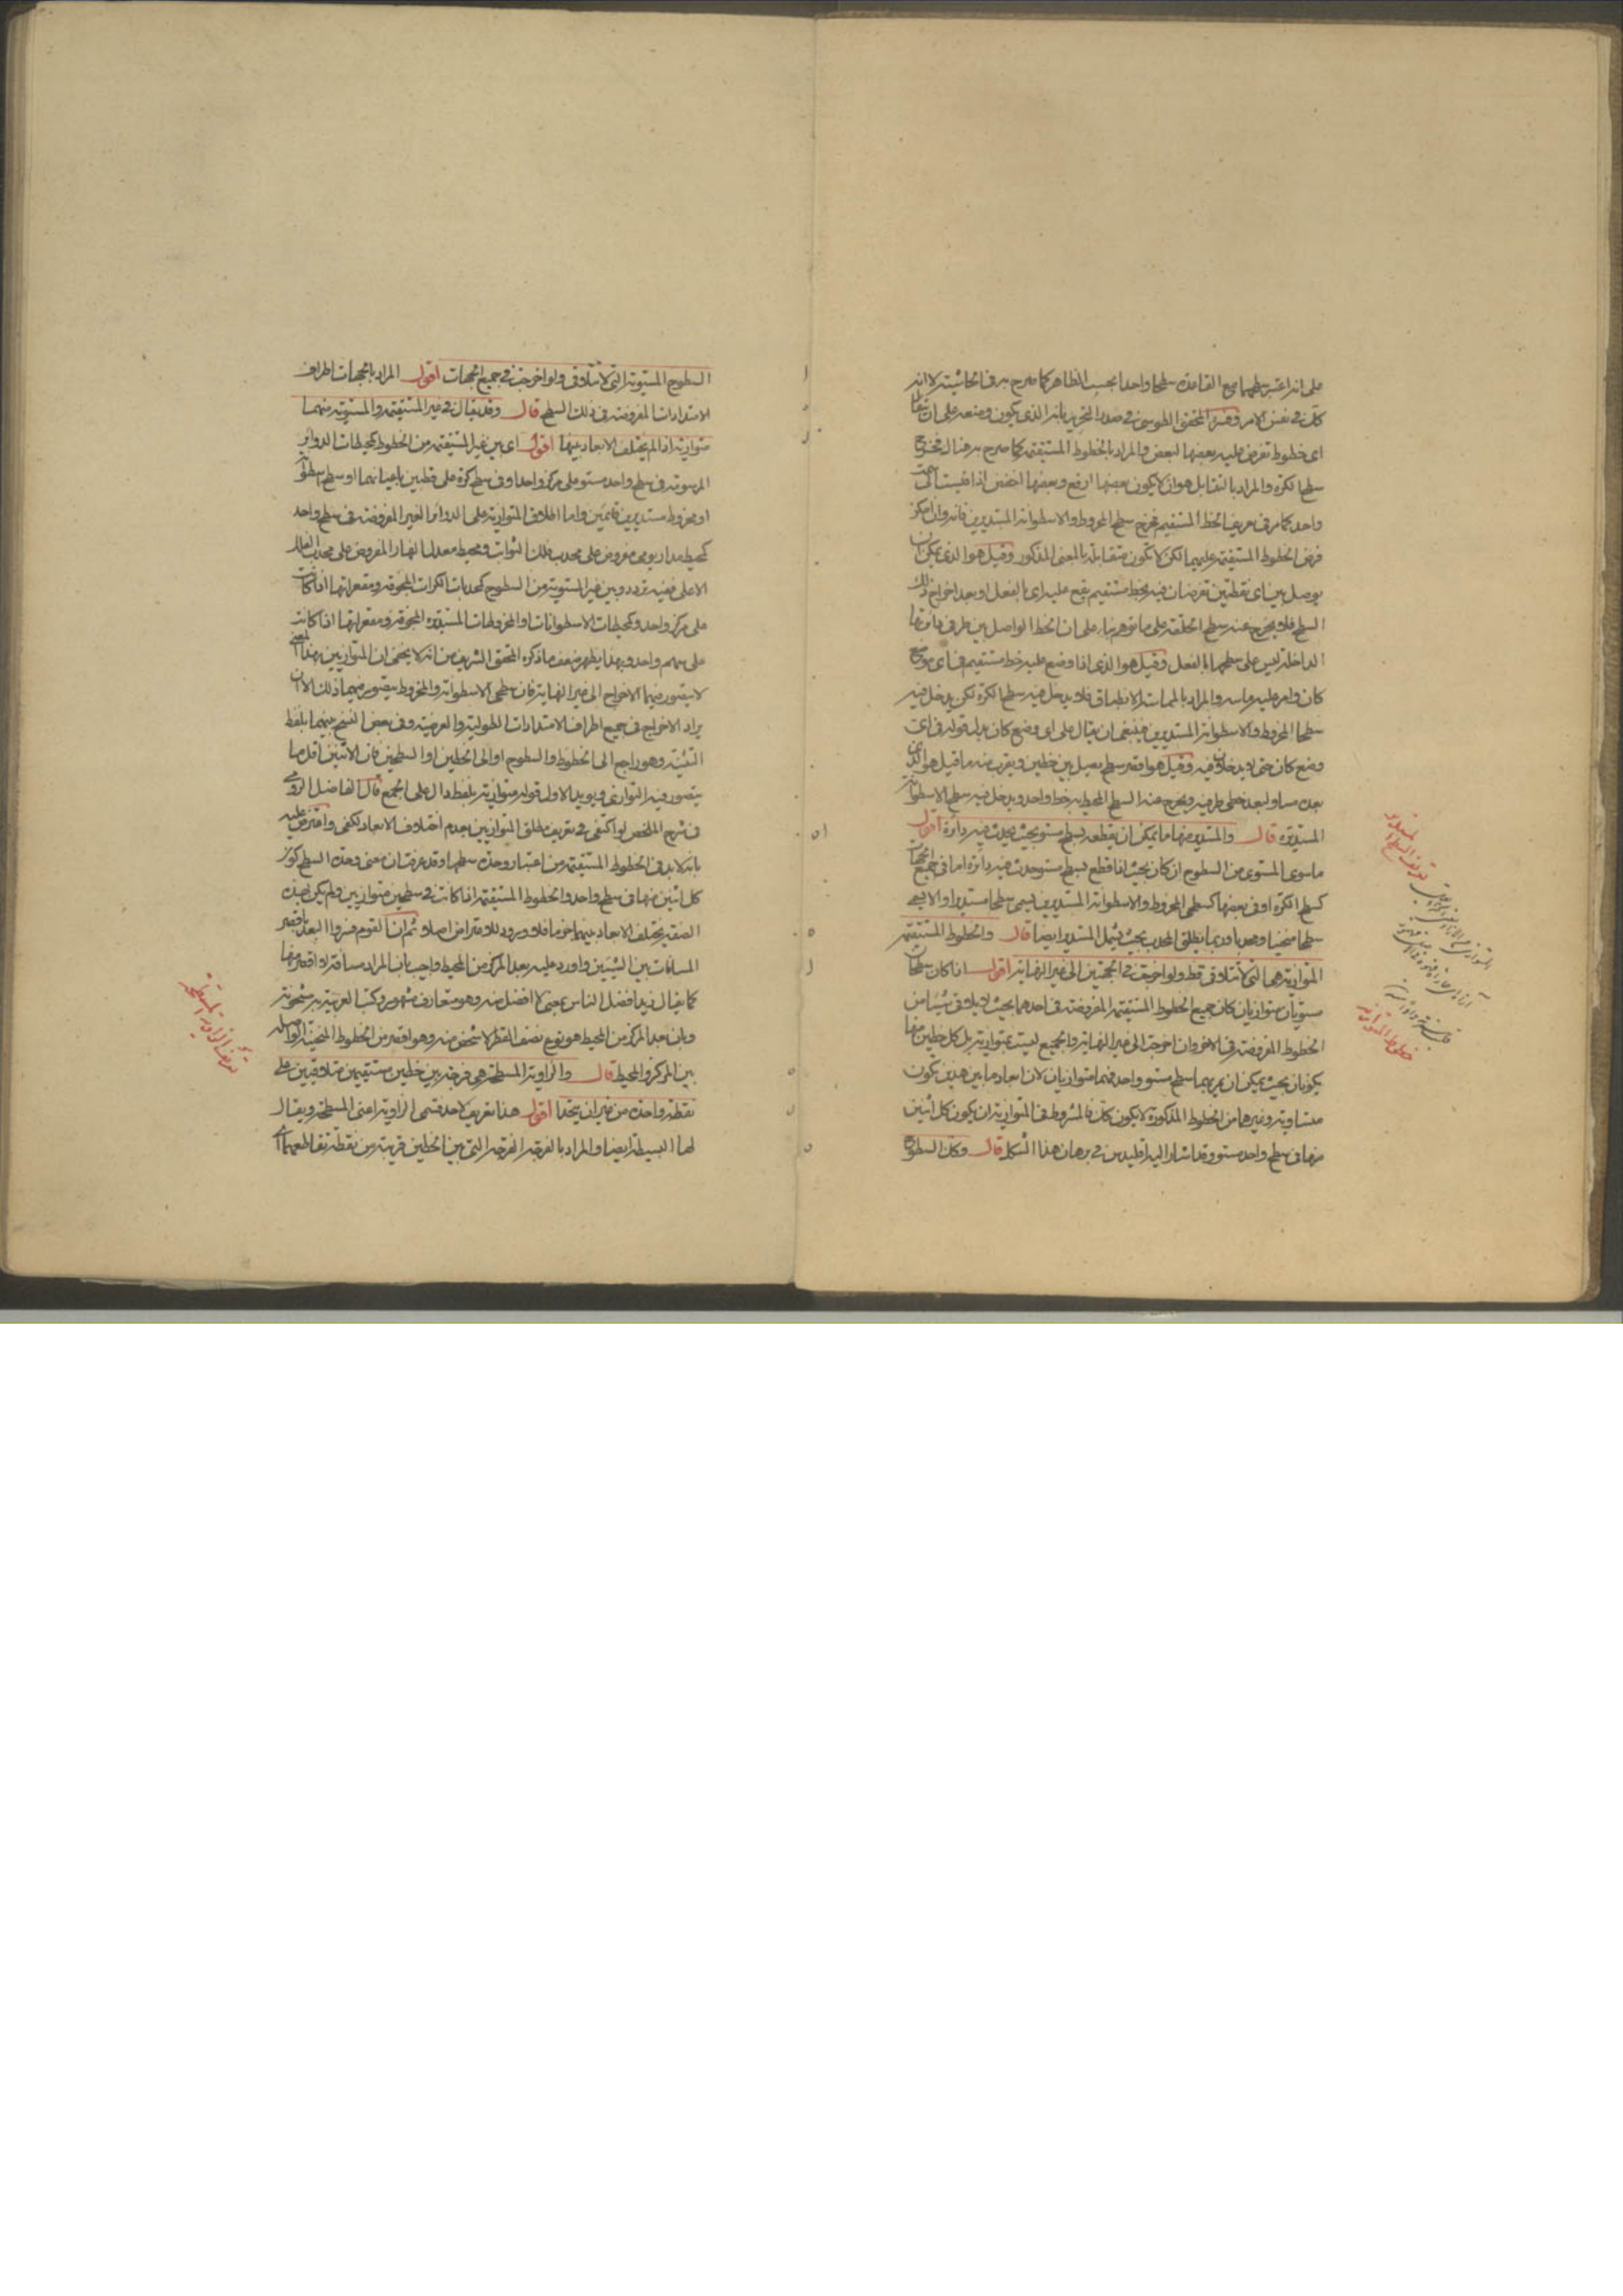 على انه اعتبر سطحها مع القاعدة سطحا واحدا بحسب الظاهر كما صرح به في الحاشية لا انه
كك في نفس الامر وفسره المحقق الطوسي في صدر التحرير بانه الذي يكون وضعه على ان يتقابل
اى خطوط تفرض عليه بعضها لبعض والمراد بالخطوط المستقيمة كما صرح به هناك فخرج
سطح الكرة والمراد بالتقابل هو ان لا يكون بعضها ارفع وبعضها اخفض اذا قيست الى سمت
واحد كما مر في تعريف الخط المستقيم فخرج سطح المخروط والاسطوانة المستديرين فانه وان امكن
فرض الخطوط المستقيمة عليهما لكن لا تكون متقابلة بالمعنى المذكور وقيل هو الذي يمكن ان
يوصل بين اى نقطتين تفرضان فيه بخط مستقيم يقع عليه اى بالفعل او بعد اخراج ذلك
السطح فلا يخرج عنه سطح الحلقة على ما توهم بناء على ان الخط الواصل بين طرفي دائرتها
الداخلة ليس على سطحها بالفعل وقيل هو الذي اذا وضع عليه خط مستقيم في اى موضع
كان وامر عليه ماسه والمراد بالمماسة الانطباق فلا يدخل فيه سطح الكرة لكن يدخل فيه
سطحا المخروط والاسطوانة المستديرين فينبغى ان يقال على اى وضع كان بدل قوله في اى
وضع كان حتى لا يدخلا فيه وقيل هو اقصر سطح يصل بين خطين ويقرب منه ما قيل هو الذي
بعده مساو لبعد خطى طرفيه ويخرج عنه السطح المحيط به خط واحد ويدخل فيه سطح الاسطوانة
المستديرة قال والمستدير منها ما يمكن ان يقطعه سطح مستو بحيث يحدث فيه دائرة اقول
ما سوى المستوى من السطوح ان كان بحيث اذا قطع بسطح مستو حدث فيه دائرة اما في جميع الجهات
كسطح الكرة او في بعضها كسطحى المخروط والاسطوانة المستديرين يسمى سطحا مستديرا والا يسمى
سطحا منحنيا ومحدبا وربما يطلق المحدب بحيث يشمل المستدير ايضا قال والخطوط المستقيمة
المتوازية هي التي لا تتلاقى قط ولو اخرجت في الجهتين الى غير النهاية اقول اذا كان سطحان
مستويان متوازيان كان جميع الخطوط المستقيمة المفروضة في احدهما بحيث لا يلاقى شيئا من
الخطوط المفروضة في الاخر وان اخرجت الى غير النهاية والجميع ليست بمتوازية بل كل خطين منها
يكونان بحيث يمكن ان يمر بهما سطح مستو واحد فهما متوازيان لان ابعاد ما بين هذين يكون
متساوية وغيرهما من الخطوط المذكورة لا يكون كك فالمشروط في المتوازية ان يكون كل اثنين
منها في سطح واحد مستو وقد اشار اليه اقليدس في برهان هذا الشكل قال وكك السطوح
تعريف السطح المستدير
خطوط المتوازية
السطوح المستوية التي لا تتلاقى ولو اخرجت في جميع الجهات اقول المراد بالجهات اطراف
الامتدادات المفروضة في ذلك السطح قال وقد يقال في غير المستقيمة والمستوية منهما
متوازية اذا لم يختلف الابعاد بينها اقول اى بين غير المستقيمة من الخطوط كمحيطات الدوائر
المرسومة في سطح واحد مستو على مركز واحد او في سطح كرة على قطبين باعيانهما او سطح اسطوانة
او مخروط مستديرين قائمين واما اطلاق المتوازية على الدوائر الغير المفروضة في سطح واحد
كمحيط مدار يومى مفروض على محدب فلك الثوابت ومحيط معدل النهار المفروض على محدب الفلك
الاعلى ففيه تردد وبين غير المستوية من السطوح كمحدبات الكرات المجوفة ومقعراتها اذا كانت
على مركز واحد وكمحيطات الاسطوانات والمخروطات المستديرة المجوفة ومقعراتها اذا كانت
على سهم واحد وبهذا يظهر ضعف ما ذكره المحقق الشريف من انه لا يخفى ان المتوازيين بهذا المعنى
لا يتصور فيهما الاخراج الى غير النهاية فان سطحى الاسطوانة والمخروط يتصور فيهما ذلك الا ان
يراد الاخراج في جميع اطراف الامتدادات الطولية والعرضية وفي بعض النسخ بينهما بلفظ
التثنية وهو راجع الى الخطوط والسطوح او الى الخطين او السطحين فان الاثنين اقل ما
يتصور فيه التوازى ويؤيد الاول قوله متوازية بلفظ دال على الجمع قال الفاضل الرومي
في شرح الملخص لو اكتفى في تعريف مطلق المتوازيين بعدم اختلاف الابعاد لكفى واعترض عليه
بانه لا بد في الخطوط المستقيمة من اعتبار وحدة سطحها وقد عرفت ان معنى وحدة السطح كون
كل اثنين منها في سطح واحد والخطوط المستقيمة اذا كانت في سطحين متوازيين ولم يكن بهذه
الصفة يختلف الابعاد بينهما خرما فلا ورود للاعتراض اصلا ثم ان القوم فسروا البعد باقصر
المسافات بين الشيئين واورد عليه بعد المركز من المحيط واجيب بان المراد مسافة لا اقصر منها
كما يقال زيد افضل الناس بمعنى لا افضل منه وهو متعارف مشهور وكتب العربية به مشحونة
وبان بعد المركز من المحيط هو نوع نصف القطر لا شخص منه وهو اقصر من الخطوط المنحنية الواصلة
بين المركز والمحيط قال والزاوية المسطحة هي فرجة بين خطين مستقيمين متلاقيين على
نقطة واحدة من غير ان يتحدا اقول هذا تعريف لاحد قسمى الزاوية اعنى المسطحة ويقال
لها البسيطة ايضا والمراد بالفرجة الفرجة التي بين الخطين قريبة من نقطة تقاطعهما
تعريف الزاوية المسطحة